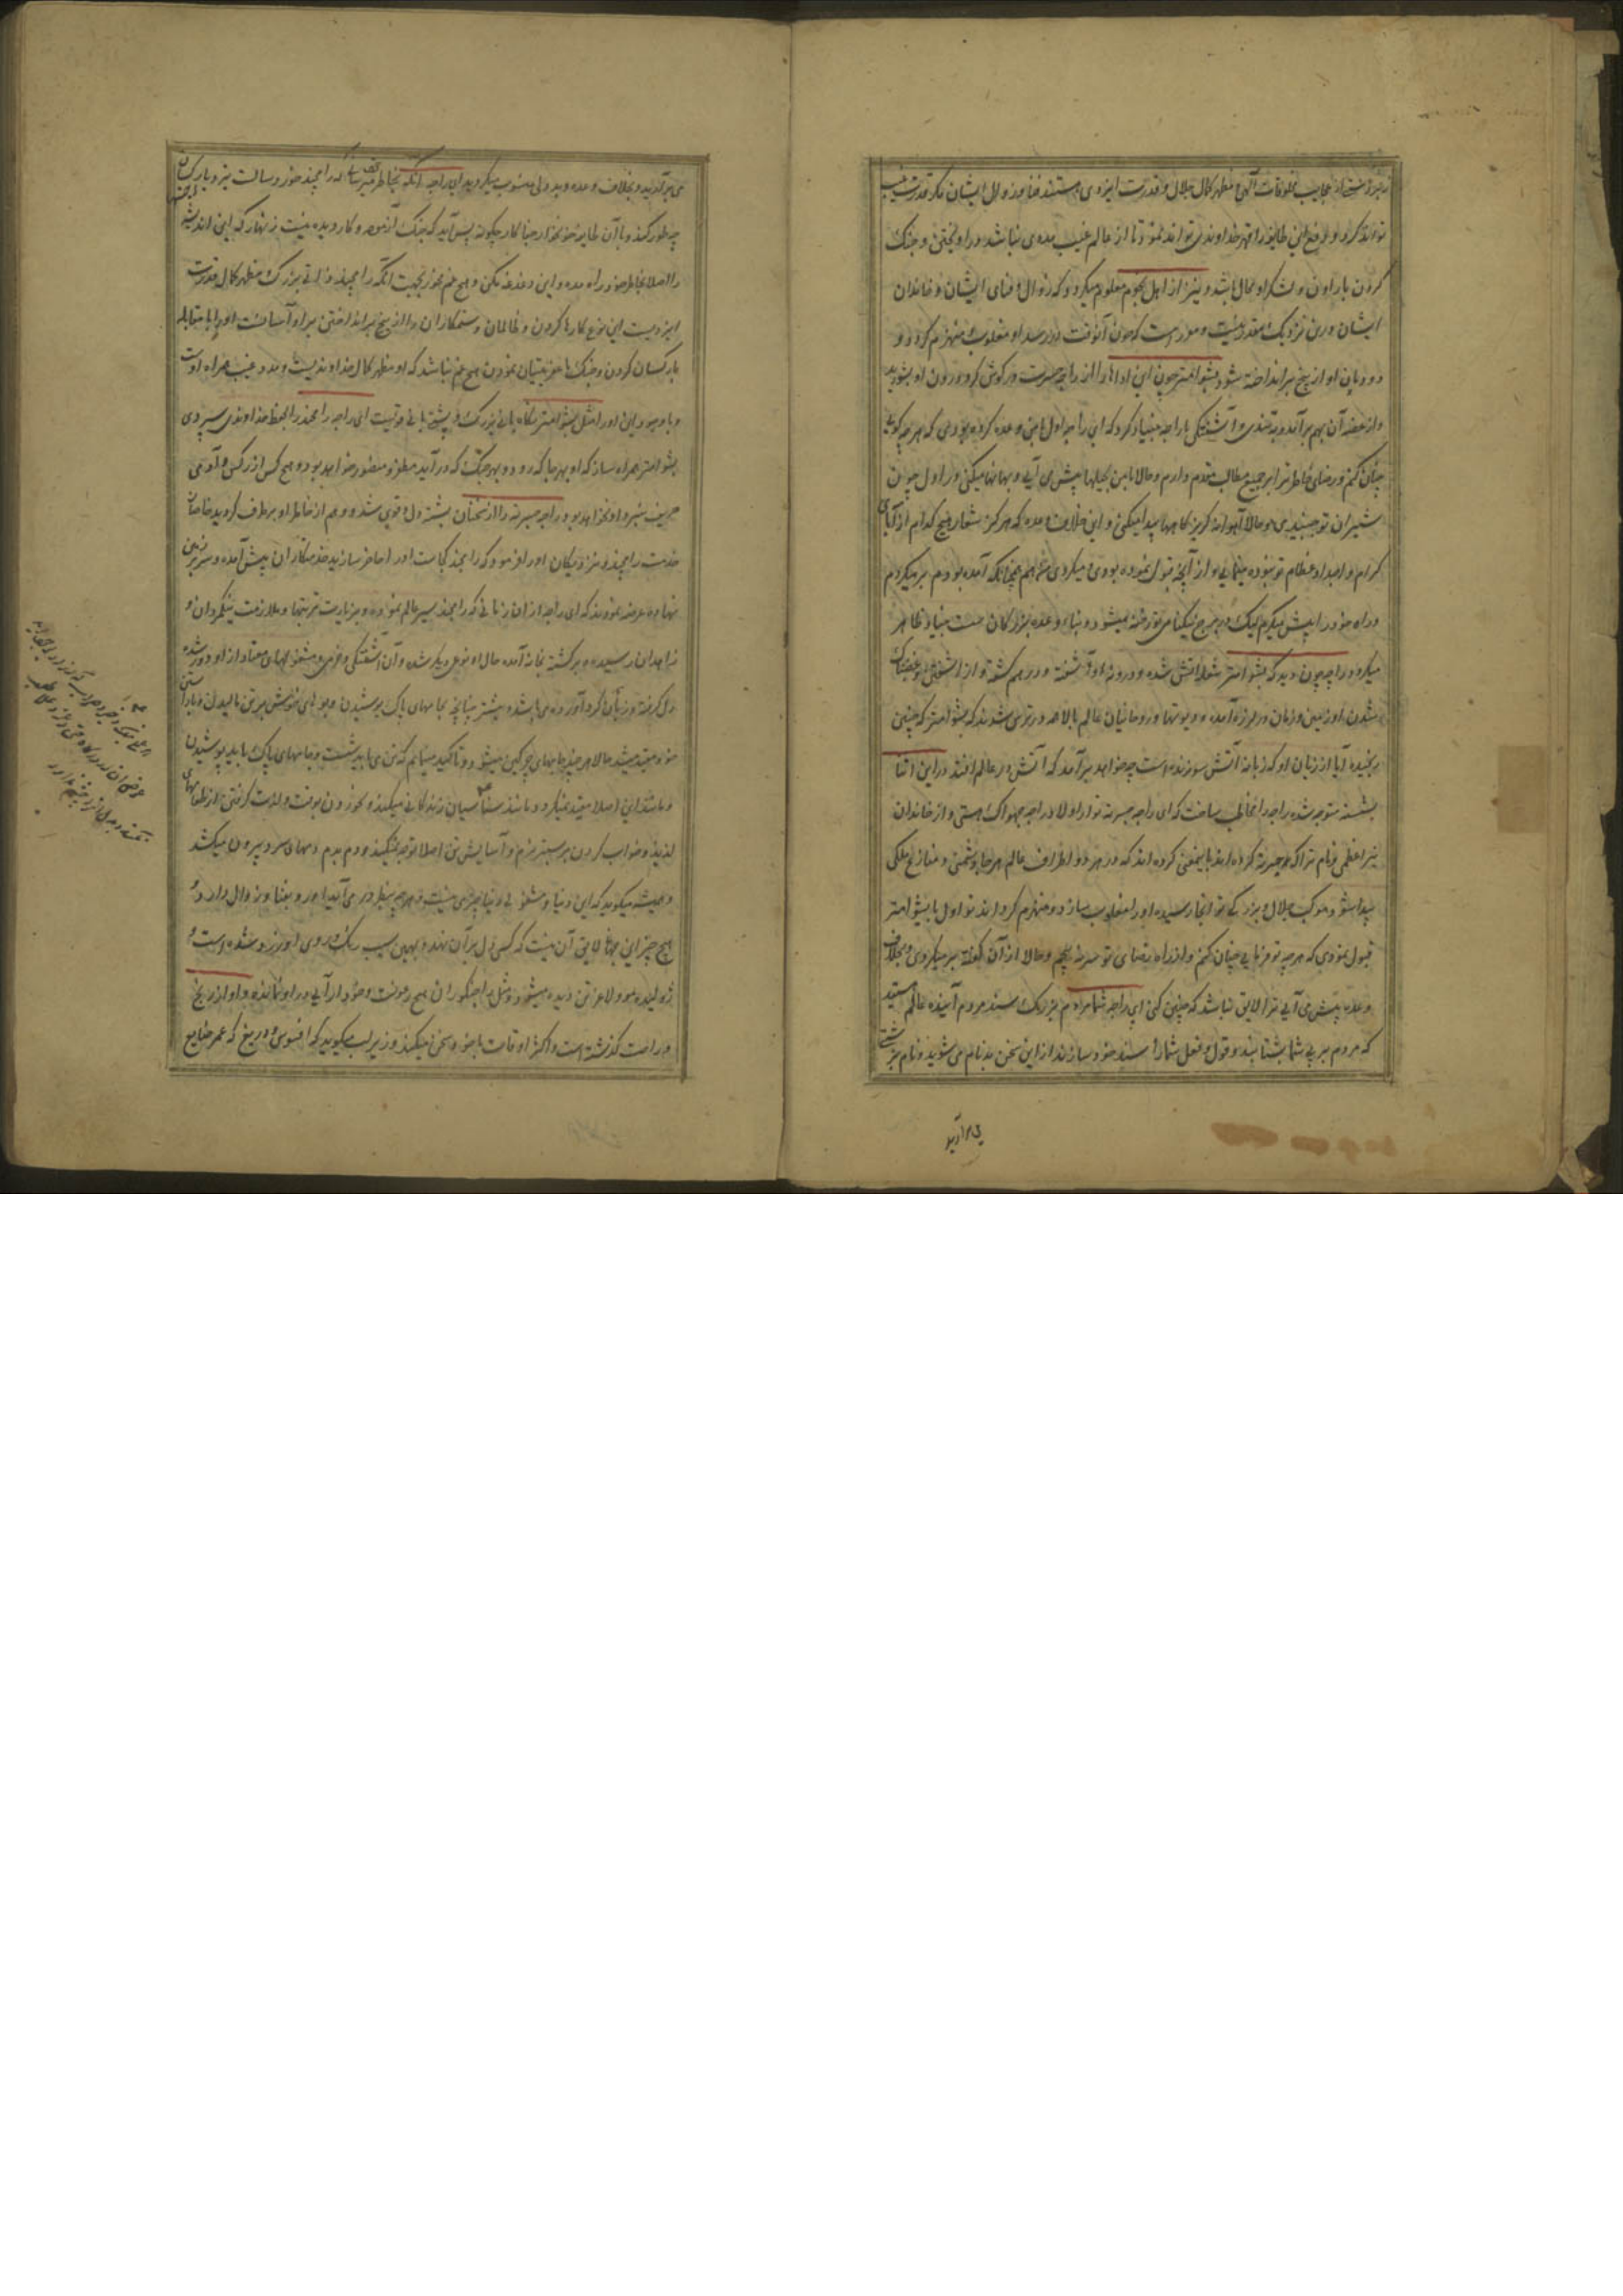 توانند کرد و او دفع این طایفه را قهر خداوندی تواند نمود تا از عالم غیب مددی نباشد درآویختن و جنگ
کردن با راون و لشکر او محال باشد و نیز از اهل نجوم معلوم میگردد که زوال و فنای ایشان و خاندان
ایشان درین نزدیک مقدر است که چون آنوقت در رسد او مغلوب و منهزم گردد و
دودمان او از بیخ برانداخته شود بشوامتر چون این اداها را از راجه جسرت در گوش کرد درون او بشورید
و از غصه آن بهم برآمد و بتندی و آشفتگی با راجه بنیاد کرد که ای راجه اول بامن وعده کرده بودی که هر چه گویی
چنان کنم و رضای خاطر ترا بر جمیع مطالب مقدم دارم و حالا بامن بحیلها پیش می آیی و بهانها میکنی در اول چون
شیران تو جنبیدی و حالا آهوانه گریزگاهها پیدا میکنی و این خلاف وعده که هرگز شعار هیچ کدام از آبای
کرام و اجداد عظام تو نبوده مینمایی و از آنچه قبول نموده بودی میگردی منهم همچنانکه آمده بودم بر میگردم
و راه خود را پیش میگیرم لیک در برج نیکنامی تو رخنه میشود و بناء وعده بزرگان سست بنیاد ظاهر
میگردد راجه چون دید که بشوامتر شعله آتش شده و درونه او آشفته و در هم گشته و از آشفتن و غضبناک
شدن او زمین و زمان در لرزه آمده و دیوتها و روحانیان عالم بالا همه در ترس شدند که بشوامتر که چنین
رنجیده آیا از زبان او که زبانه آتش سوزنده است چه خواهد برآمد که آتش در عالم افتد در این اثنا
بششته متوجه شده راجه را مخاطب ساخت که ای راجه جسرته تو از اولاد راجه اجهواک هستی و از خاندان
نیر اعظمی و نام ترا که جسرته کرده اند باینمعنی کرده اند که در هر دو اطراف عالم هر جا دشمنی و منازع ملکی
پیدا شود موکب جلال و بزرگی تو آنجا رسیده او را مغلوب سازد و منهزم گرداند تو اول با بشوامتر
قبول نمودی که هر چه تو فرمایی چنان کنم و از راه رضای تو سر نه پیچم و حالا از آن گفته بر میگردی و بخلاف
وعده پیش می آیی ترا لایق نباشد که چنین کنی ای راجه شما مردم بزرگ سند مردم آینده عالم هستید
که مردم بر پی شما بشتابند و قول و فعل شما را سند خود سازند از این سخن بدنام می شوید و نام بزشتی
می برآرید
می برآرید و بخلاف وعده و بددلی منسوب میگردید ای راجه آنکه بخاطر میرسانی که رامچند خورد سالست نبرد با راکسان
چه طور کند و با آن طایفه خونخوار جفاکار چگونه پیش آید که جنگ آزموده و کار دیده نیست زنهار که این اندیشه
را اصلا بخاطر خود راه مده و این دغدغه مکن و هیچ غم مخور بجهت آنکه رامچند ذاتی بزرگ مظهر کمال قدرت
ایزدیست این نوع کارها کردن و ظالمان و ستمکاران را از بیخ برانداختن بر او آسانست او را با مقابله
با راکسان کردن و جنگ با عفریتیان نمودن هیچ غم نباشد که او مظهر کمال خداوندیست و مدد غیب همراه اوست
و با وجود این او را مثل بشوامتر نگاه بانی بزرگ و پشتی بانی قویست ای راجه رامچند را بحفظ خداوندی سپردی
بشوامتر همراه ساز که او بهر جا که رود و بهر جنگ که درآید مظفر و منصور خواهد بود و هیچ کس از راکس و آدمی
حریف نبرد او نخواهد بود راجه جسرته را از سخنان بششته دل قوی شد و وهم از خاطر او برطرف گردید خاصان
خدمت رامچند و نزدیکان او را فرمود که رامچند کجاست او را حاضر سازید خدمتکاران پیش آمده و سر بر زمین
نهاده عرضه نمودند که ای راجه از آن زمانی که رامچند سیر عالم نموده و بزیارت تیرتهها و ملازمت نیکمردان و
زاهدان رسیده و برگشته بخانه آمده حال او نوعی دیگر شده و آن شگفتگی و خرمی و مشغولیهای معتاد از او دور شده
دل گرفته و زبان گرد آورده می باشد و پیشتر چنانچه بجامهای پاک پوشیدن و بوهای خوش بر تن مالیدن و بآراستن
خود مقید میشد حالا هر چند جامهای چرکین میشود و تاکید مینمایم که تن می باید شست و جامهای پاک باید پوشیدن
و مانند این اصلا مقید نمیگردد و مانند سناسیان زندگانی میکند و بخوردن بوقت و لذت گرفتن از طعامهای
لذیذ و خواب کردن بر بستر نرم و آسایش تن اصلا توجه نمیکند و دم بدم دمهای سرد بیرون میکشد
و همیشه میگوید که این دنیا و مشغولی دنیا چیزی نیست و هر چه بنظر در می آید او رو بفنا و زوال دارد و
هیچ چیز این جهان لایق آن نیست که کسی دل بر آن نهد و بهمین سبب رنگ روی او زرد شده است و
ژولیده مو و لاغر تن دیده میشود و مثل راجکنوران هیچ رعونت و خودآرایی در او نمانده و او از رنج
و راحت گذشته است و اکثر اوقات با خود سخن میکند و زیر لب میگوید که افسوس و دریغ که عمر ضایع